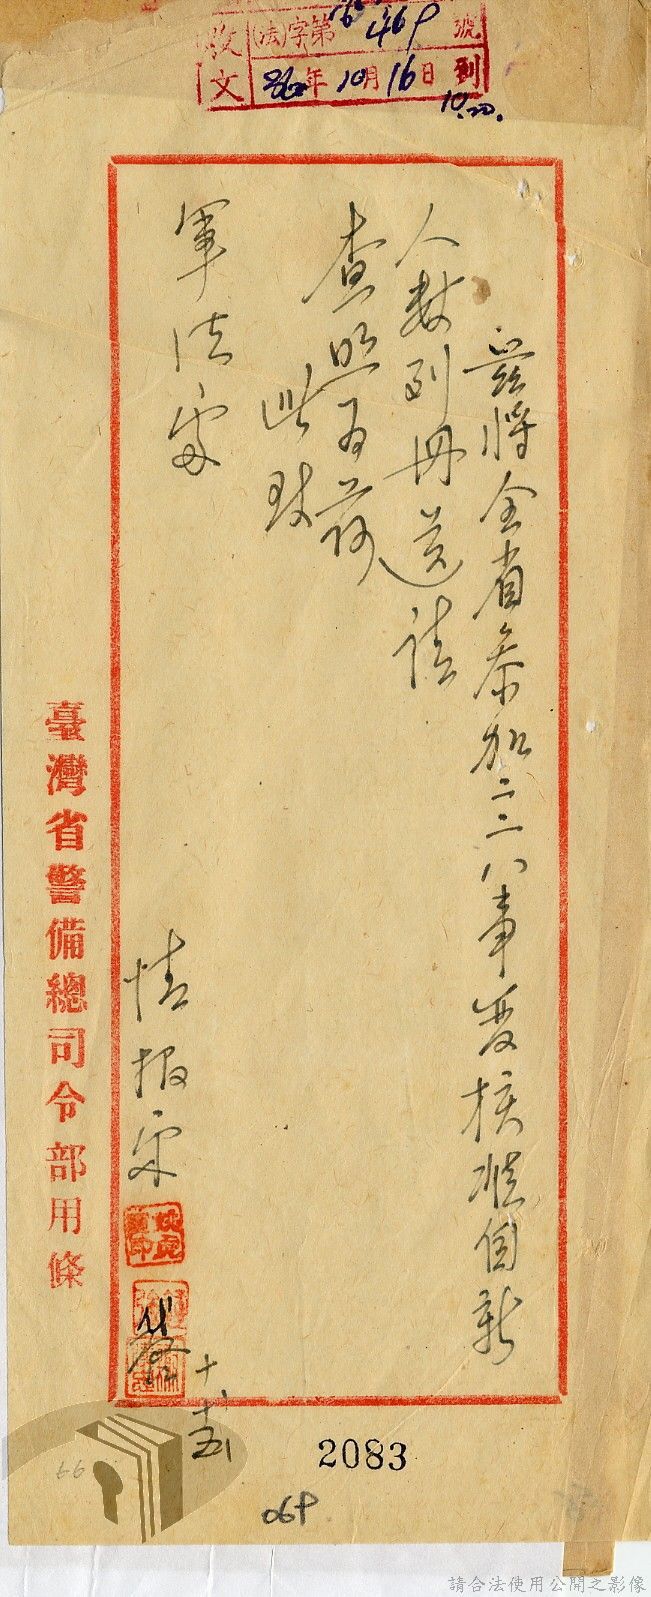 收文 法字第469號
36年10月16日到
10.20.
茲將全省參加二二八事變核准自新
人數列冊送請
查照為荷
此致
軍法處
情報室
代
十、十五
臺灣省警備總司令部用條
2083
069
66
請合法使用公開之影像